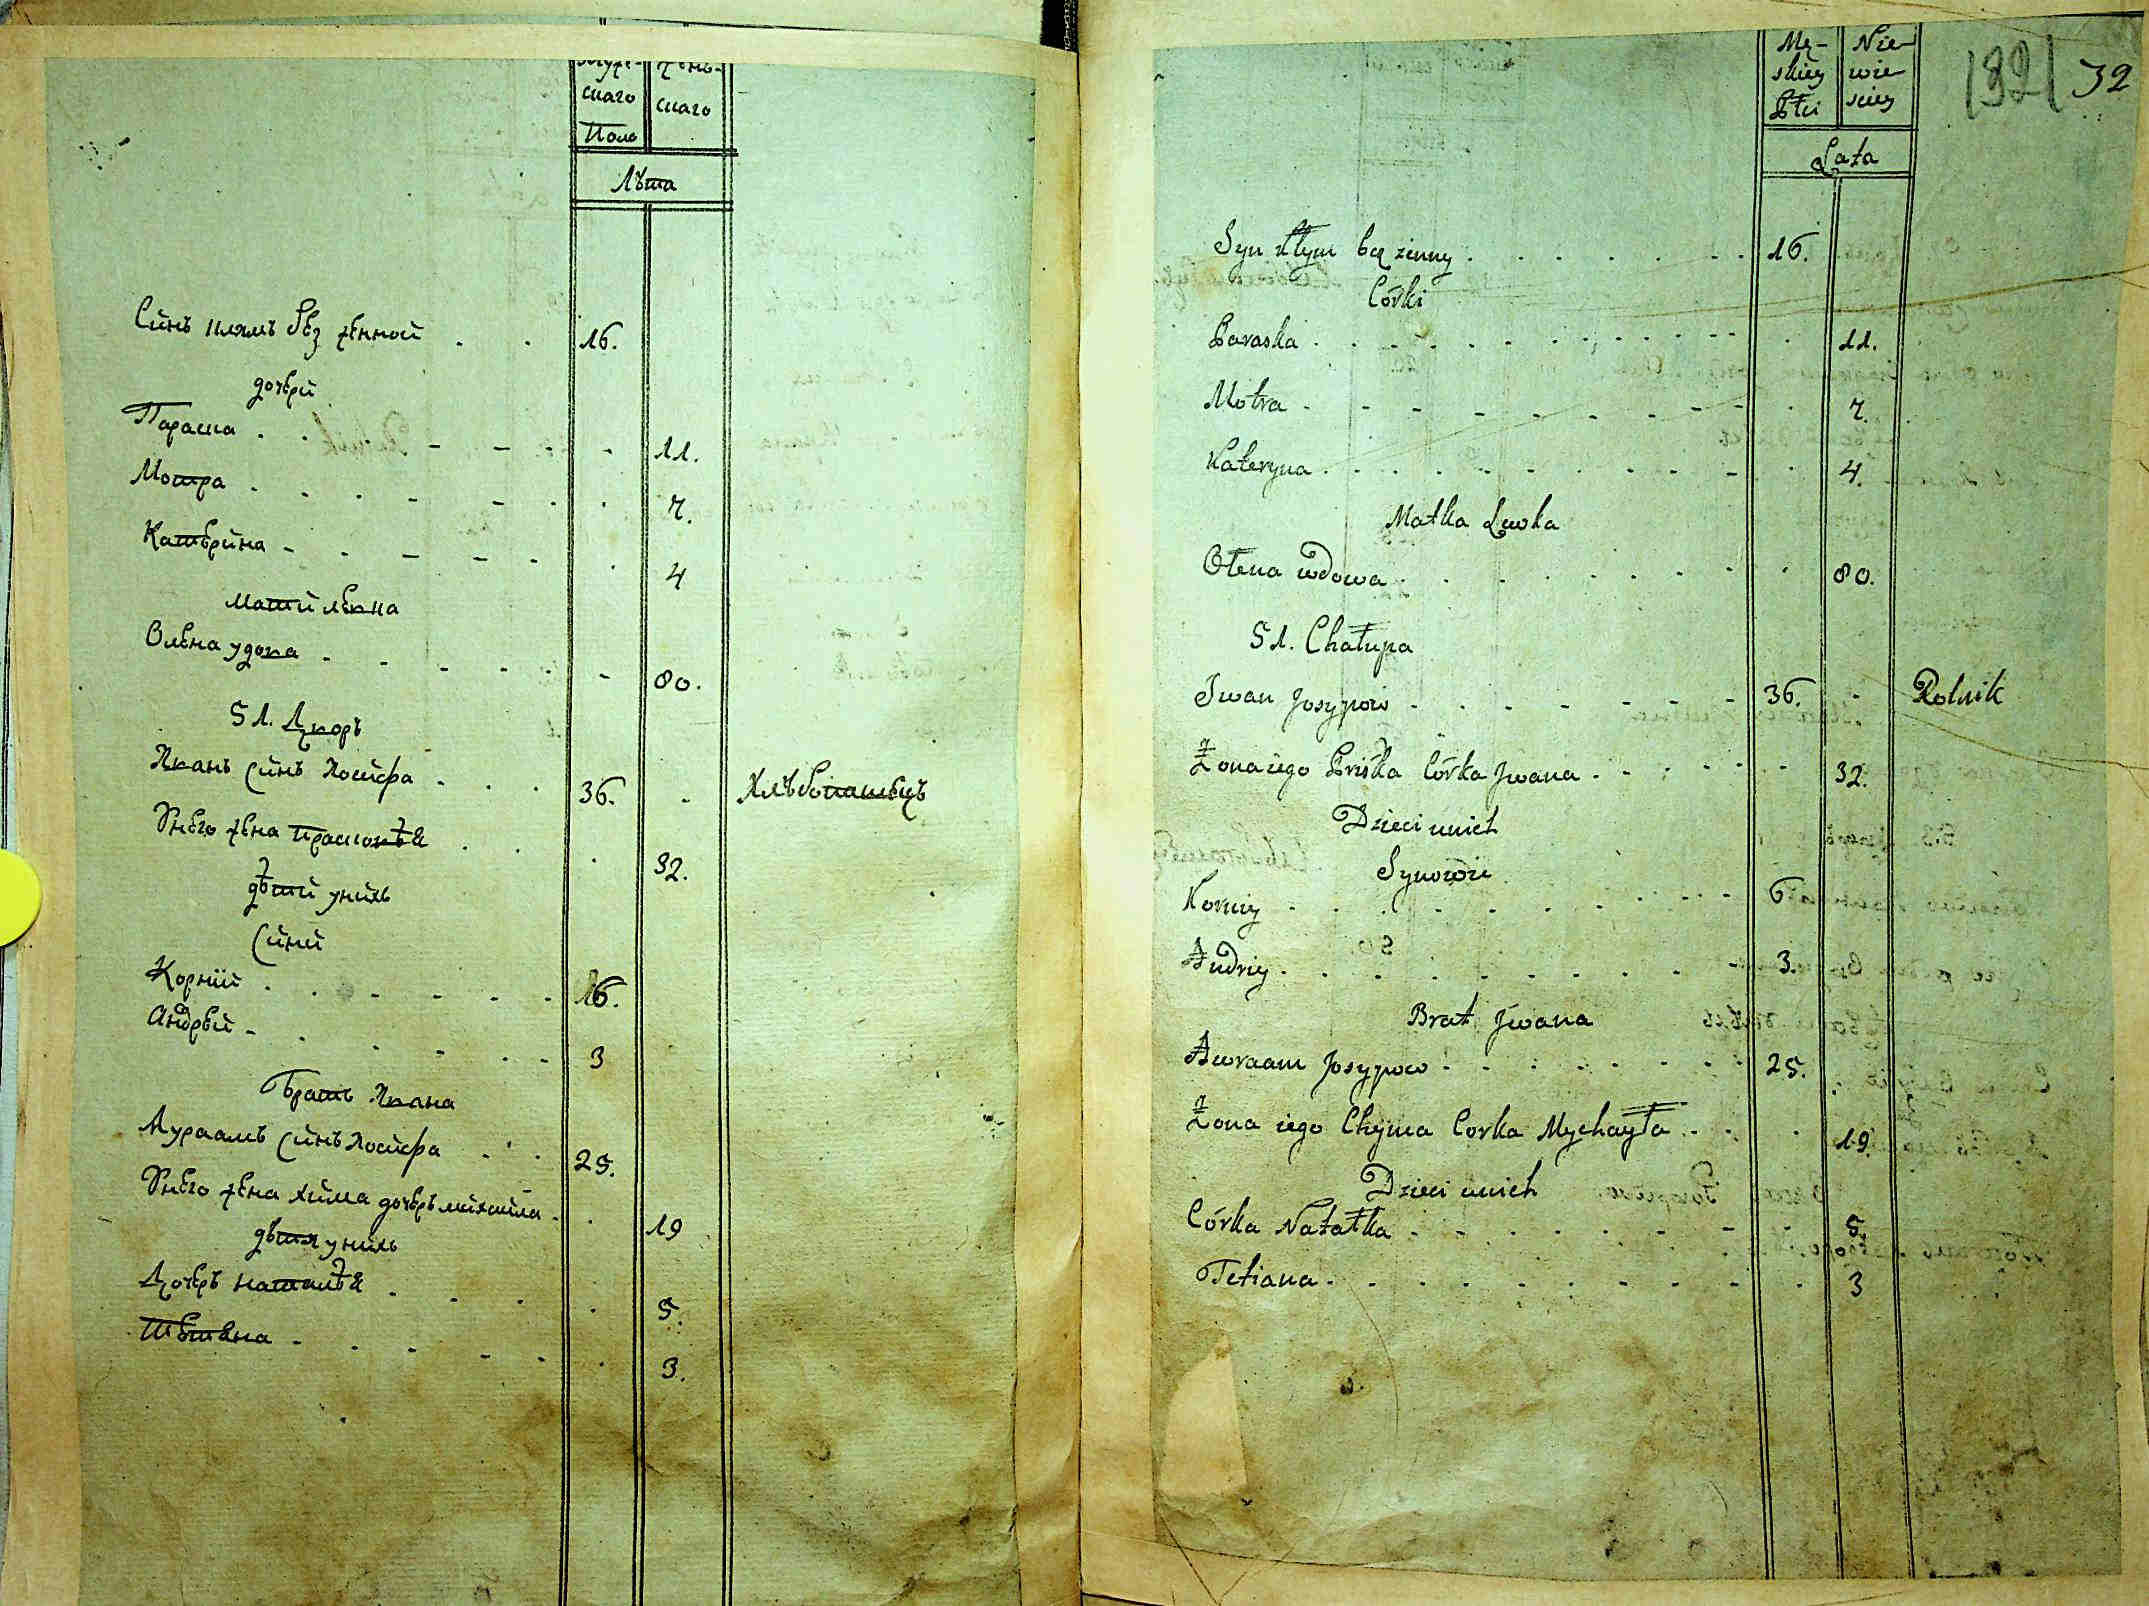 Муже-
скаго
Полѡ
жень-
скаго
Лѣта
Синъ климъ без женной . . 16.
дочери
Параска . . - - - - 11.
Мотра . . . - - . . 7.
Катерина - . - - . . 4
мати левка
Олена удова . - - - - - 80.
51. Дворъ
Иванъ синъ Иосифа . . . 36. . Хлѣбопашецъ
Унего жена Прасковѣя . . . 32.
дѣти унихъ
Сини
Корнiй . . . - - - 16.
андрей - . . - . - 3
Братъ Ивана
Авраамъ синъ Иосифа . . . 25.
Унего жена хима дочеръ михайла . . 19
дѣтя унихъ
Дочеръ наталѣя . . . . 5.
Тетяна - . . - . . 3.
Mę-
skiey
Płci
Nie-
wie-
sciey
1821 32
Lata
Syn Kłym bez żenny . . . . . . 16.
Córki
Paraska . . . . . . . . 11.
Motra . - - - - - - - . 7.
Kateryna . . . . . . . . 4.
Matka Lewka
Ołena wdowa . . . . . . . 80.
51. Chałupa
Jwan Josypow . . . . . . - 36. - Rolnik
Żona iego Priśka Córka Jwana . . . . - 32.
Dzieci unich
Synowie
Korniy . . . . . . . 6
Andriy . . . . . . . - 3.
Brat Jwana
Awraam Josypow . . . . . . 25.
Żona iego Chyma Corka Mychayła . . . 19.
Dzieci unich
Córka Natałka . . . . . . - 5.
Tetiana . . . . . . . . 3